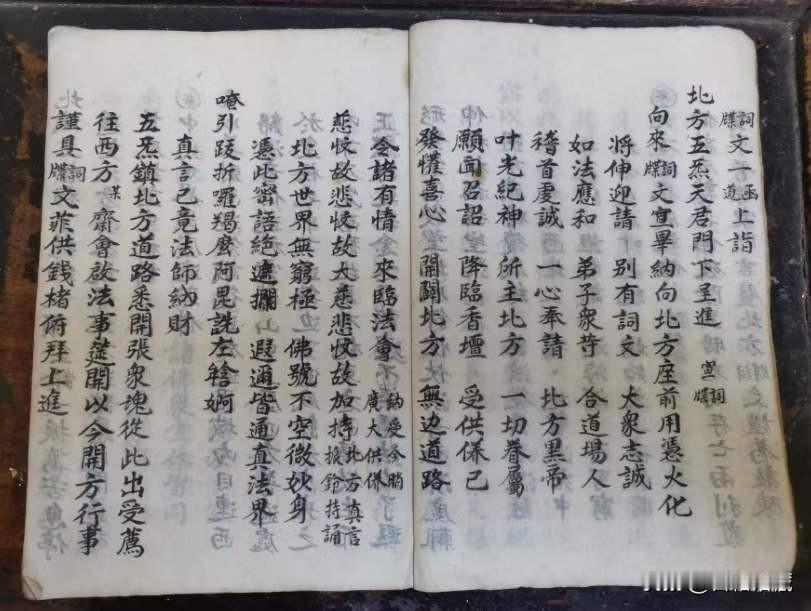 詞牒文一函道上詣
北方五炁天君門下呈進 宣詞牒
向來詞牒文宣畢納向北方座前用憑火化
將伸迎請 別有詞文 大衆志誠
如法應和 弟子衆等 合道場人
稽首虔誠 一心奉請 北方黑帝
叶光紀神 所主北方 一切眷屬
願聞召詔 降臨香壇 受供養已
發懽喜心 開闢北方 無边道路
令諸有情 來臨法會 納受今晌廣大供養
悲忟故悲忟故大慈悲忟故加持北方真言振鈴持誦
北方世界無窮極 佛號不空微妙身
憑此密語絶遮攔 遐邇皆通真法界
唵引跤折囉羯麼阿毘詵左
真言已竟法師納財
五炁鎮北方道路悉開張衆魂從此出受薦
往西方 某齋會啟法事筵開以今開方行事
謹具詞牒文菲供錢楮俯拜上進